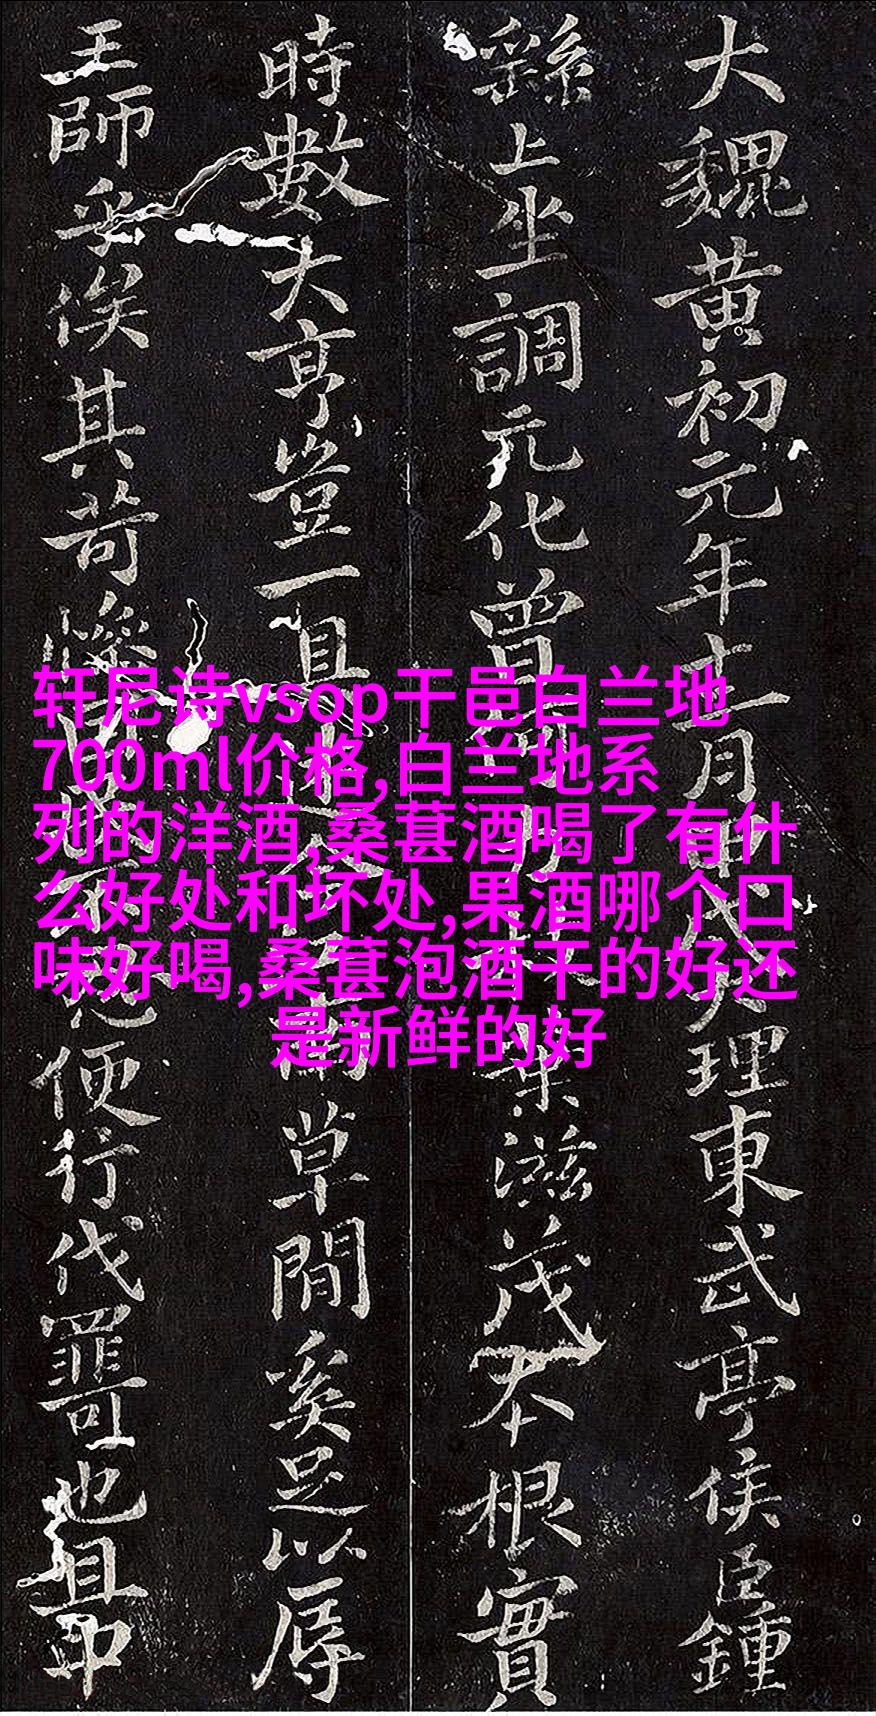 大魏黄初元年十一月大理東武亭侯臣鍾
繇上坐調元化曾滋茂本根實
時數大亨豈一旦草間奚足以辱
王師乎俟其苛慘便行伐也且
轩尼诗vsop干邑白兰地
700ml价格,白兰地系
列的洋酒,桑葚酒喝了有什
么好处和坏处,果酒哪个口
味好喝,桑葚泡酒干的好还
是新鲜的好